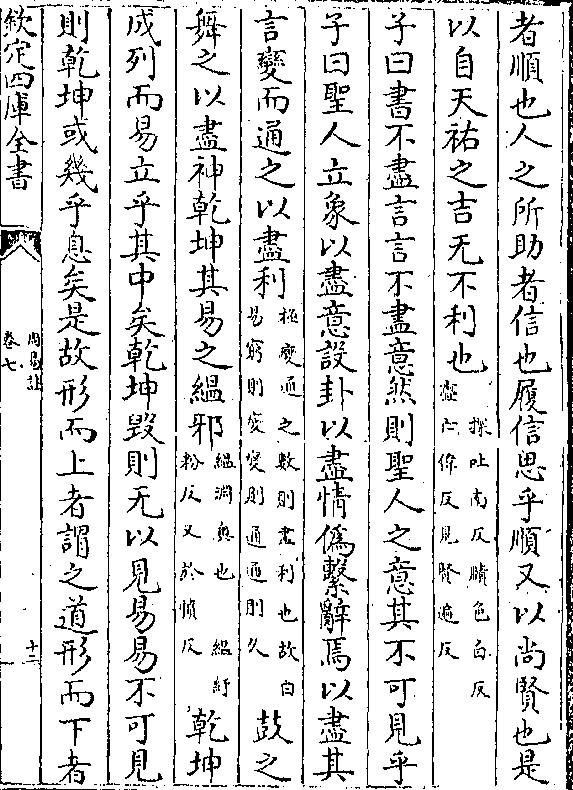 者順也人之所助者信也履信思乎順又以尚賢也是
以自天祐之吉无不利也探吐南反賾色白反亹亡偉反見賢遍反
子曰書不盡言言不盡意然則聖人之意其不可見乎
子曰聖人立象以盡意設卦以盡情偽繫辭焉以盡其
言變而通之以盡利極變通之數則盡利也故曰易窮則變變則通通則久鼓之
舞之以盡神乾坤其易之縕邪縕淵奧也 縕紆粉反又於憤反乾坤
成列而易立乎其中矣乾坤毀則无以見易易不可見
則乾坤或幾乎息矣是故形而上者謂之道形而下者
欽定四庫全書
周易註
卷七
十二